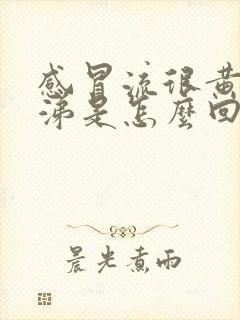 感冒流很黄
涕是怎麼回
晨光煮雨